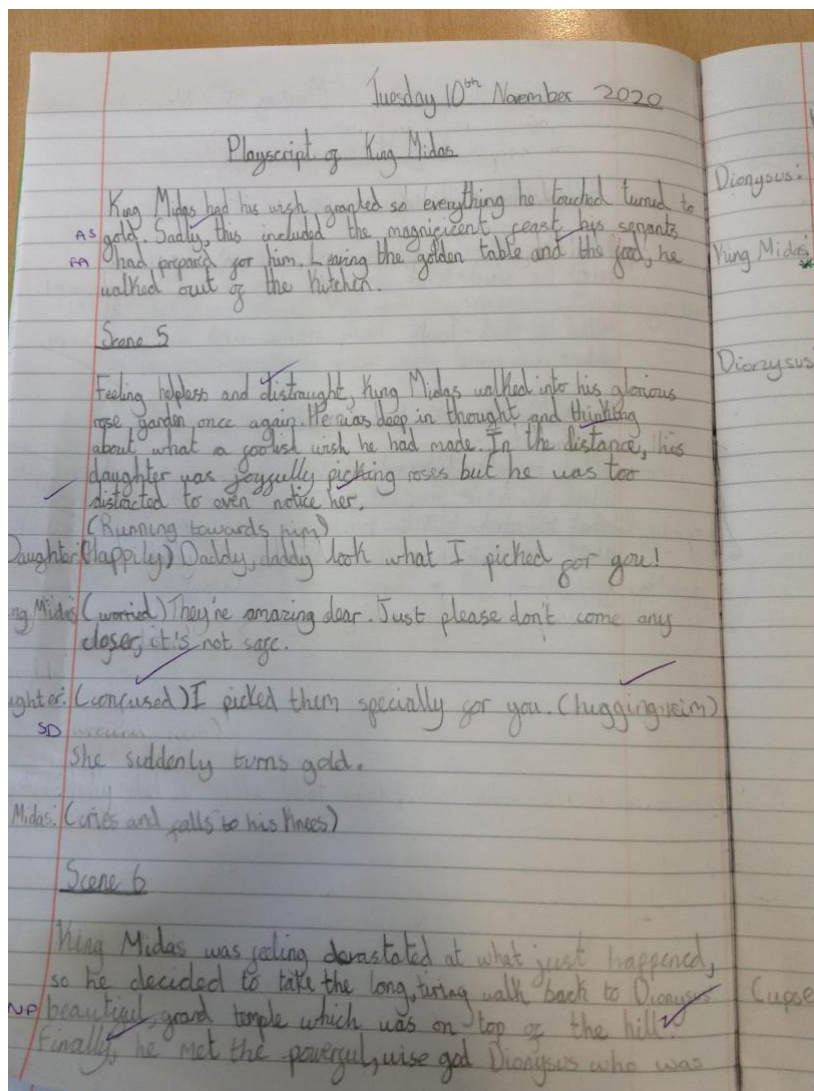 Tuesday 10th November 2020
Playscript of King Midas
King Midas had his wish granted so everything he touched turned to
AS gold. Sadly, this included the magnificent feast his servants
FA had prepared for him. Leaving the golden table and the food, he
walked out of the kitchen.
Scene 5
Feeling helpless and distraught, King Midas walked into his glorious
rose garden once again. He was deep in thought and thinking
about what a foolish wish he had made. In the distance, his
daughter was joyfully picking roses but he was too
distracted to even notice her.
(Running towards him)
Daughter: (Happily) Daddy, daddy look what I picked for you!
ng Midas: (worried) They're amazing dear. Just please don't come any
closer, it's not safe.
ughter: (confused) I picked them specially for you. (hugging him)
SD
She suddenly turns gold.
Midas: (cries and falls to his knees)
Scene 6
King Midas was feeling devastated at what just happened,
so he decided to take the long, tiring walk back to Dionysus
NP beautiful, grand temple which was on top of the hill.
Finally, he met the powerful, wise god Dionysus who was
Dionysus:
King Midas
Dionysus
Cupse